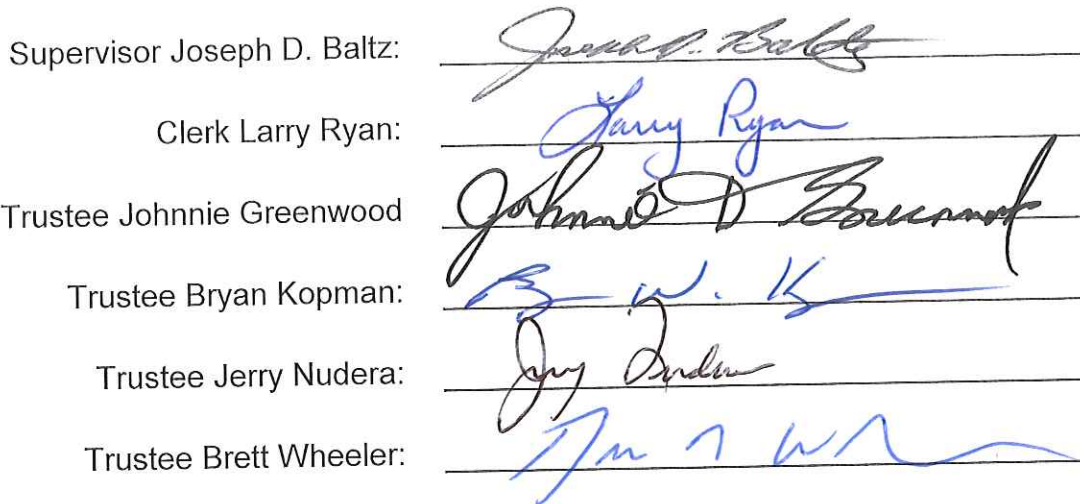 Supervisor Joseph D. Baltz: Joseph D. Baltz
Clerk Larry Ryan: Larry Ryan
Trustee Johnnie Greenwood Johnnie D Greenwood
Trustee Bryan Kopman: B W. K
Trustee Jerry Nudera: Jerry Nudera
Trustee Brett Wheeler: